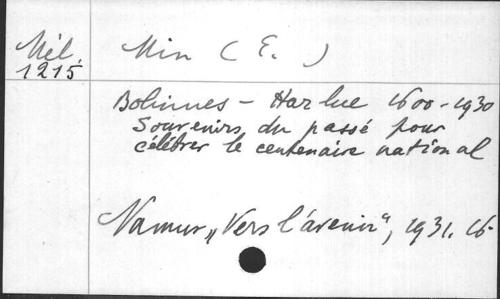 Mél.
1215
Min (E.)
Bolinnes - Harlue 1600-1930
Souvenirs du passé pour
célébrer le centenaire national
Namur, „Vers l'avenir", 1931. 16-